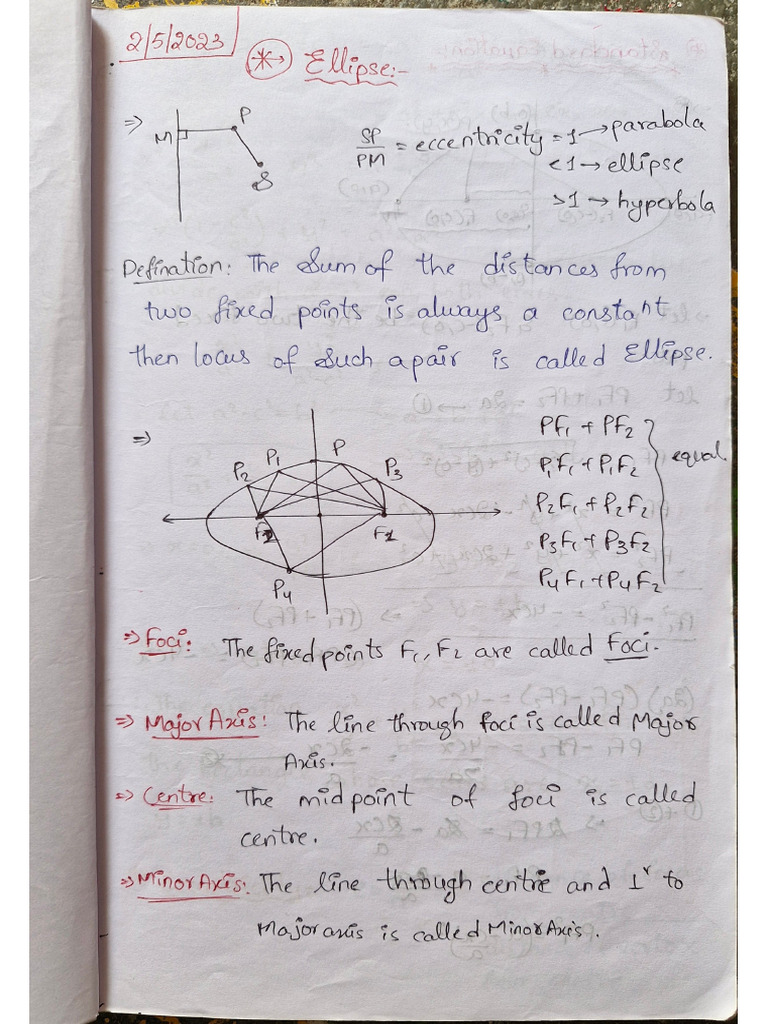 2/5/2023
Ellipse:-
=> M P S
SP/PM = eccentricity = 1 → parabola
< 1 → ellipse
> 1 → hyperbola
Defination: The Sum of the distances from
two fixed points is always a constant
then locus of Such a pair is called Ellipse.
=>
P2 P1 P P3
P4
PF1 + PF2
P1F1 + P1F2
P2F1 + P2F2
P3F1 + P3F2
P4F1 + P4F2
equal
=> Foci: The fixed points F1, F2 are called Foci.
=> Major Axis: The line through foci is called Major
Axis.
=> Centre: The midpoint of foci is called
centre.
=> Minor Axis: The line through centre and ⊥r to
Major axis is called Minor Axis.